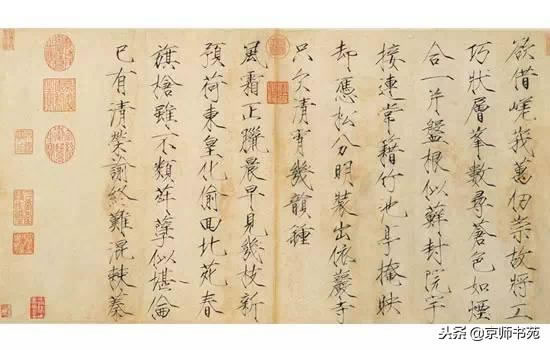 欲借嵯峩萬仞崇故将工
巧狀層峯數尋蒼色如煙
合一片盤根似蘚封院宇
接連常藉竹池亭掩映
却憑松分明裝出依巖寺
只欠清宵幾韻鍾
風霜正臘晨早見幾枝新
預荷東皇化偷回北苑春
旗槍雖不類荈孽似堪倫
已有清榮諭終難混棘蓁
头条@京师书苑